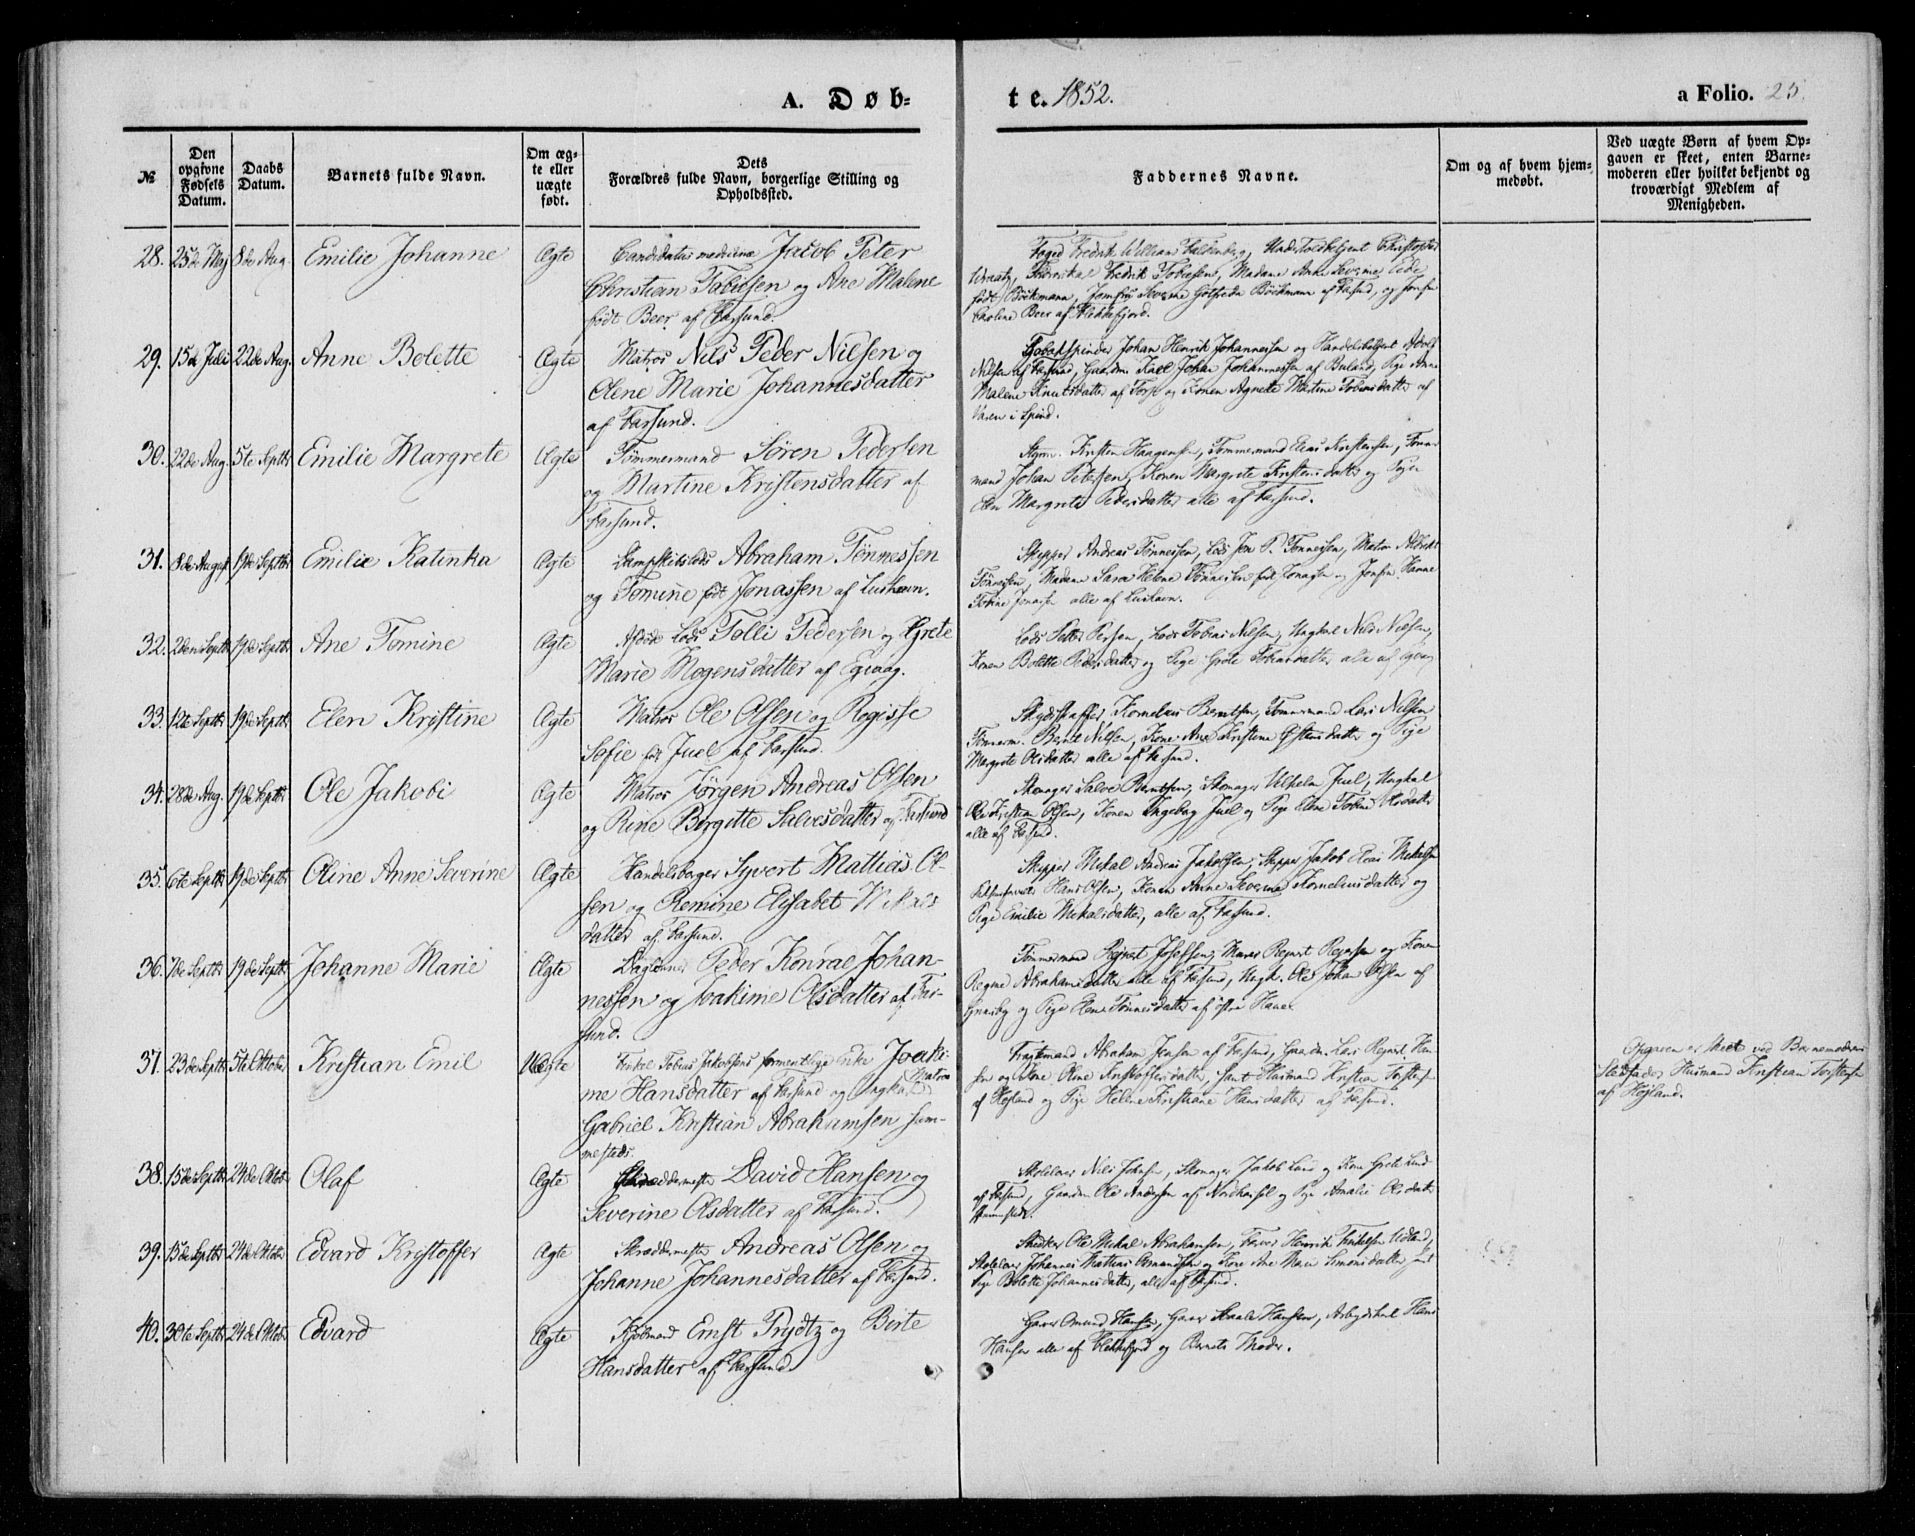 A. Døb-
te. 1852.
a Folio. 25.
№
Den opgivne Fødsels Datum.
Daabs Datum.
Barnets fulde Navn.
Om ægte eller uægte født.
Dets Forældres fulde Navn, borgerlige Stilling og Opholdssted.
Faddernes Navne.
Om og af hvem hjemmedøbt.
Ved uægte Børn af hvem Opgaven er skeet, enten Barnemoderen eller hvilket bekjendt og troværdigt Medlem af Menigheden.
28. 25de Maj 8de Aug. Emilie Johanne Ægte Candidatus medicinæ Jacob Peter
Christian Tobiesen og Ane Malene
født Beer af Farsund.
Foged Fredrik William Falkenberg, Undertoldbetjent Christopher
Fredrik Tobiesens, Madame Ane Severine Eide,
født Böckmann, Jomfru Severine Böckmann af Farsund, og Jomfru
Caroline Beer af Flekkefjord.
29. 15de Juli 22de Aug. Anne Bolette Ægte Matros Nils Peder Nilsen og
Olene Marie Johannesdatter
af Farsund.
Tobakspinder Johan Henrik Johannesen og Handelsbetjent
Nilsen af Farsund, Gaardm. Karl Johan Johannessen af Buland, Pige Anne
Malene Knutsdatter af Torp og Konen Agnette Martine Tobiasdatter af
Varen i Spind.
30. 22de Aug. 5te Septbr. Emilie Margrete Ægte Tömmermand Sören Pedersen
og Martine Kristensdatter af
Farsund.
Styrm. Kristen Haagensen, Tømmermand Elias Kristensen, Tømmer-
mand Johan Petersen, Konen Margrete Kristensdatter og Pige
Elen Margrete Pedersdatter alle af Farsund.
31. 8de August 19de Septbr. Emilie Katinka Ægte Dampskibslods Abraham Tönnessen
og Tomine født Jonassen af Lushavn.
Skipper Andreas Tönnessen, Lods Jens P. Tönnessen, Matros
Tönnessen, Madame Sara Helene Tönnessen født Jonassen og Jomfru Hanne
Tobine Jonassen alle af Lushavn.
32. 2den Septbr. 19de Septbr. Ane Tomine Ægte Afdøde Lods Tolli Pedersen og Grete
Marie Mogensdatter af Egvaag.
Lods Peter Persen, Lods Tobias Nilsen, Ungkal Nils Nielsen,
Konen Bolette Pedersdatter og Pige Grete Tobiasdatter, alle af Egvaag
33. 12te Septbr. 19de Septbr. Elen Kristine Ægte Matros Ole Olsen og Regisse
Sofie født Juel af Farsund.
Skydsskaffer Kornelius Berntsen, Tömmermand Lars Nilsen
Tömmerm. Bernt Nilsen, Kone Ane Kristine Östensdatter og Pige
Margrete Olsdatter alle af Farsund.
34. 28de Aug. 19de Septbr. Ole Jakobi Ægte Matros Jörgen Andreas Olsen
og Rine Birgitte Salvesdatter af Farsund
Skomager Salve Berntsen, Skomager Vilhelm Juel, Ungkal
Ole Kristian Olsen, Konen Ingeborg Juel og Pige Elene Tobine Olsdatter
alle af Farsund.
35. 6te Septbr. 19de Septbr. Oline Anne Severine Ægte Handelsborger Syvert Mattias Ol-
sen og Remine Elisabet Mikals
datter af Farsund.
Skipper Mikal Andreas Jakobsen, Skipper Jakob Elias Mikalsen
Hans Olsen, Konen Anne Severine Korneliusdatter og
Pige Emilie Mikalsdatter, alle af Farsund.
36. 7de Septbr. 19de Septbr. Johanne Marie Ægte Daglönner Peder Konrad Johan-
nessen og Joakime Olsdatter af Far-
sund.
Tömmermand Reinert Josefsen, Murer Reinert Reinertsen og Konen
Regine Abrahamsdatter alle af Farsund, Ungk. Ole Johan Olsen af
og Pige Elene Tönnesdatter af östre Hauge.
37. 23de Septbr. 5te Oktober Kristian Emil Uægte Enkel Tobias Jakobsens formentlige Enke Joaki-
me Hansdatter af Farsund og Ungkal Matros
Gabriel Kristian Abrahamsen sam-
mesteds.
Abraham Jensen af Farsund, Gaardm. Lars Reinert Han-
sen og Kone Oline Kristoffersdatter, samt Husmand Kristian Torstensen
af Höjland og Pige Helene Kristiane Hansdatter af Farsund.
Opgaven er skeet ved Barnemoderens
Stedfader Husmand Kristian Torstensen
af Höjland.
38. 15de Septbr. 24de Oktob. Olaf Ægte Skræddermester David Hansen og
Severine Olsdatter af Farsund.
Skolelærer Nils Johnsen, Skomager Jakob Lund og Kone Grete Lund
af Farsund, Gaardm. Ole Andersen af Nordhassel og Pige Amalie Olsdatter
sammesteds.
39. 15de Septbr. 24de Oktobr. Edvard Kristoffer Ægte Skræddermester Andreas Olsen og
Johanne Johannesdatter af Farsund.
Snedker Ole Mikal Abrahamsen, Farver Henrik Udland,
Skolelærer Johannes Mattias Osmundsen og Kone Ane Marie Simonsdatter samt
Pige Bolette Johannesdatter, alle af Farsund.
40. 30te Septbr. 24de Oktob. Edvard Ægte Kjöbmand Ernst Trydtz og Birte
Hansdatter af Farsund
Garver Omund Hansen, Garver Staale Hansen, Arbejdskal Hans
Hansen alle af Flekkefjord og Barnets Moder.